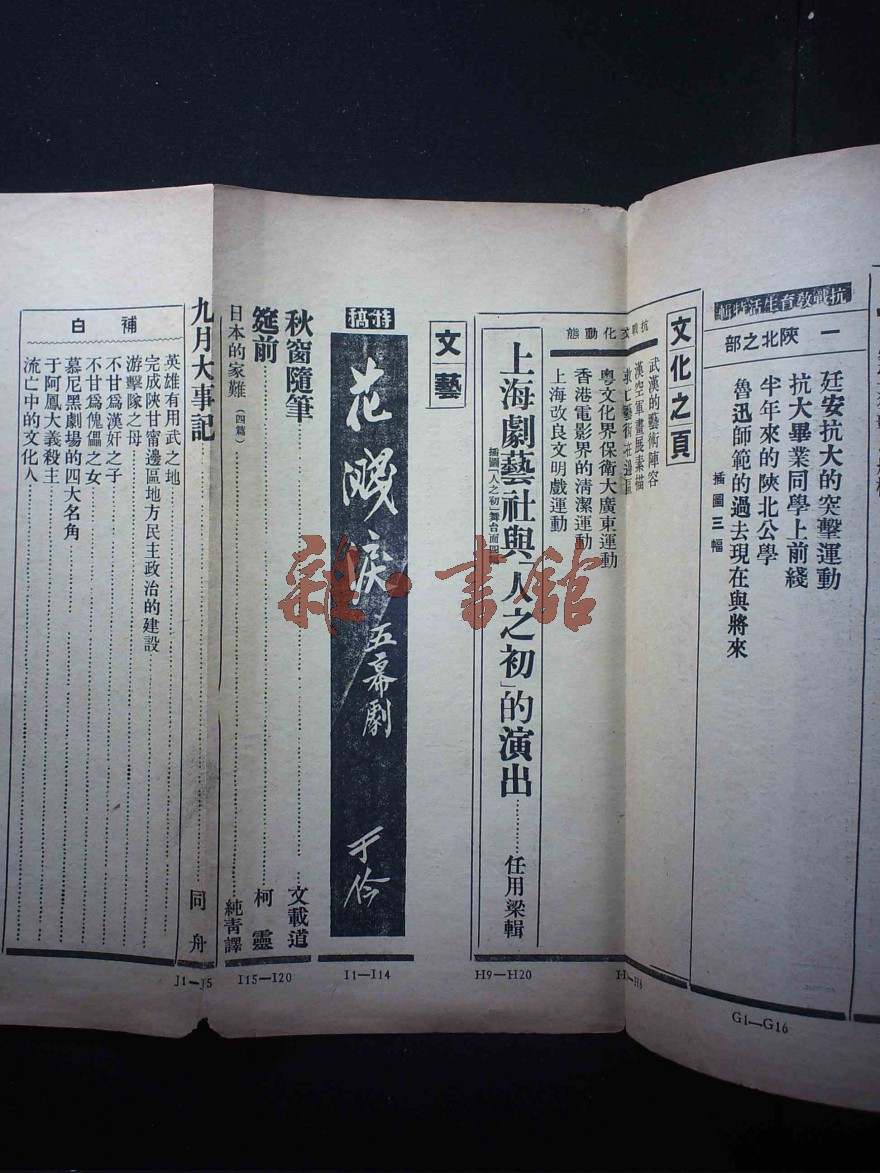 抗戰教育生活特輯
一 陝北之部
廷安抗大的突擊運動
抗大畢業同學上前綫
半年來的陝北公學
魯迅師範的過去現在與將來
插圖三幅
G1—G16
文化之頁
抗戰文化動態
武漢的藝術陣容
漢空軍畫展素描
救亡藝術在邊區
粵文化界保衛大廣東運動
香港電影界的清潔運動
上海改良文明戲運動
上海劇藝社與「人之初」的演出……任用梁輯
H9—H20
文藝
特稿
花濺淚 五幕劇 于伶
I1—I14
秋窗隨筆……文載道
筵前……柯靈
日本的家難（四篇）……純青譯
I15—I20
九月大事記……同舟
J1—J5
補白
英雄有用武之地
完成陝甘甯邊區地方民主政治的建設
游擊隊之母
不甘爲漢奸之子
不甘爲傀儡之女
慕尼黑劇場的四大名角
于阿鳳大義殺主
流亡中的文化人
雜·書館